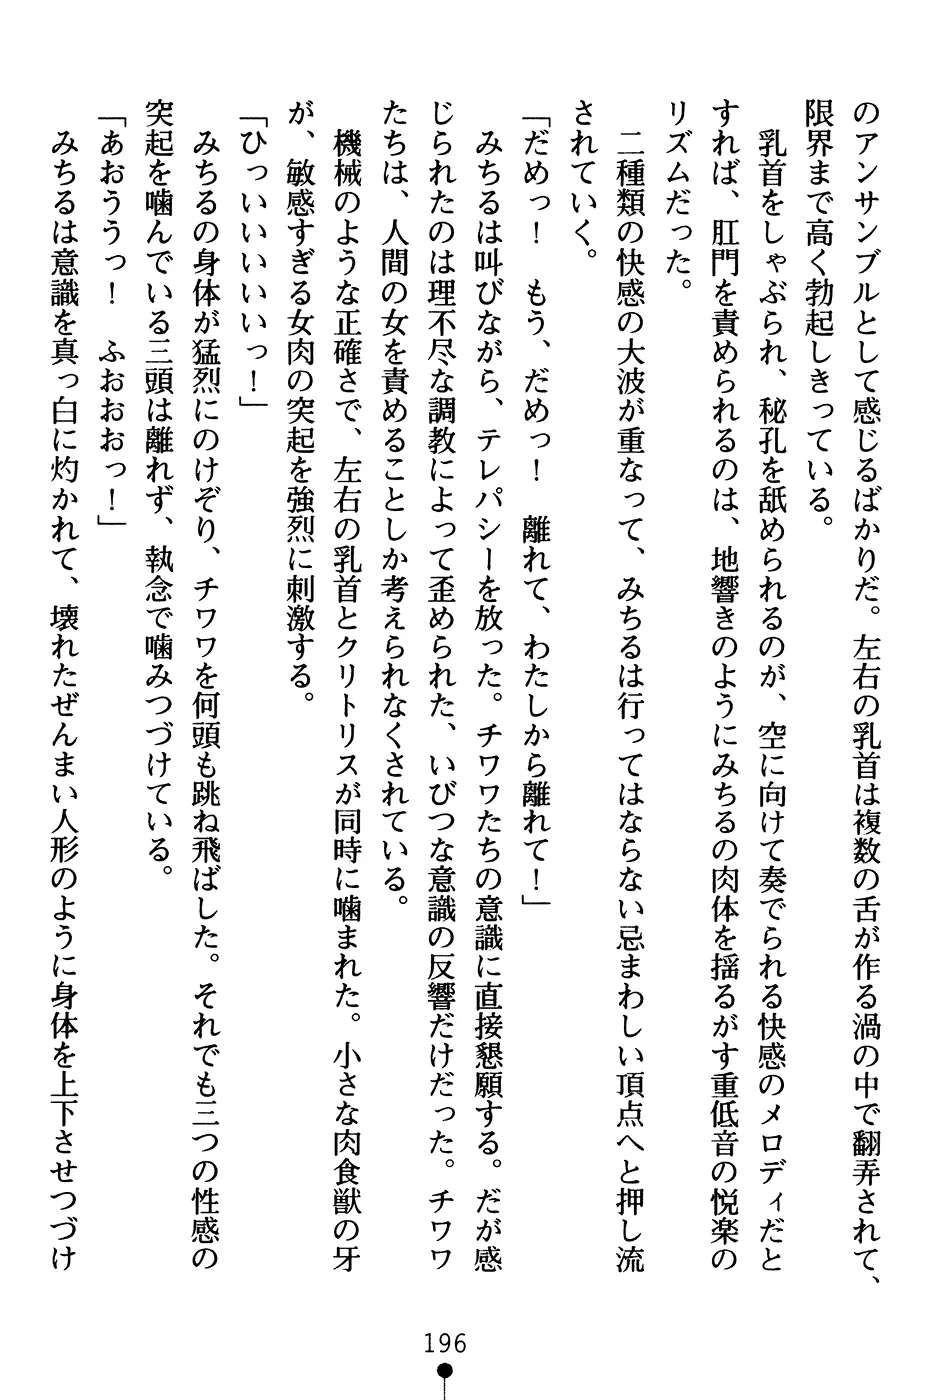 のアンサンブルとして感じるばかりだ。左右の乳首は複数の舌が作る渦の中で翻弄されて、
限界まで高く勃起しきっている。
乳首をしゃぶられ、秘孔を舐められるのが、空に向けて奏でられる快感のメロディだと
すれば、肛門を責められるのは、地響きのようにみちるの肉体を揺るがす重低音の悦楽の
リズムだった。
二種類の快感の大波が重なって、みちるは行ってはならない忌まわしい頂点へと押し流
されていく。
「だめっ！　もう、だめっ！　離れて、わたしから離れて！」
みちるは叫びながら、テレパシーを放った。チワワたちの意識に直接懇願する。だが感
じられたのは理不尽な調教によって歪められた、いびつな意識の反響だけだった。チワワ
たちは、人間の女を責めることしか考えられなくされている。
機械のような正確さで、左右の乳首とクリトリスが同時に噛まれた。小さな肉食獣の牙
が、敏感すぎる女肉の突起を強烈に刺激する。
「ひっいいいいいっ！」
みちるの身体が猛烈にのけぞり、チワワを何頭も跳ね飛ばした。それでも三つの性感の
突起を噛んでいる三頭は離れず、執念で噛みつづけている。
「あおううっ！　ふおおおっ！」
みちるは意識を真っ白に灼かれて、壊れたぜんまい人形のように身体を上下させつづけ
196